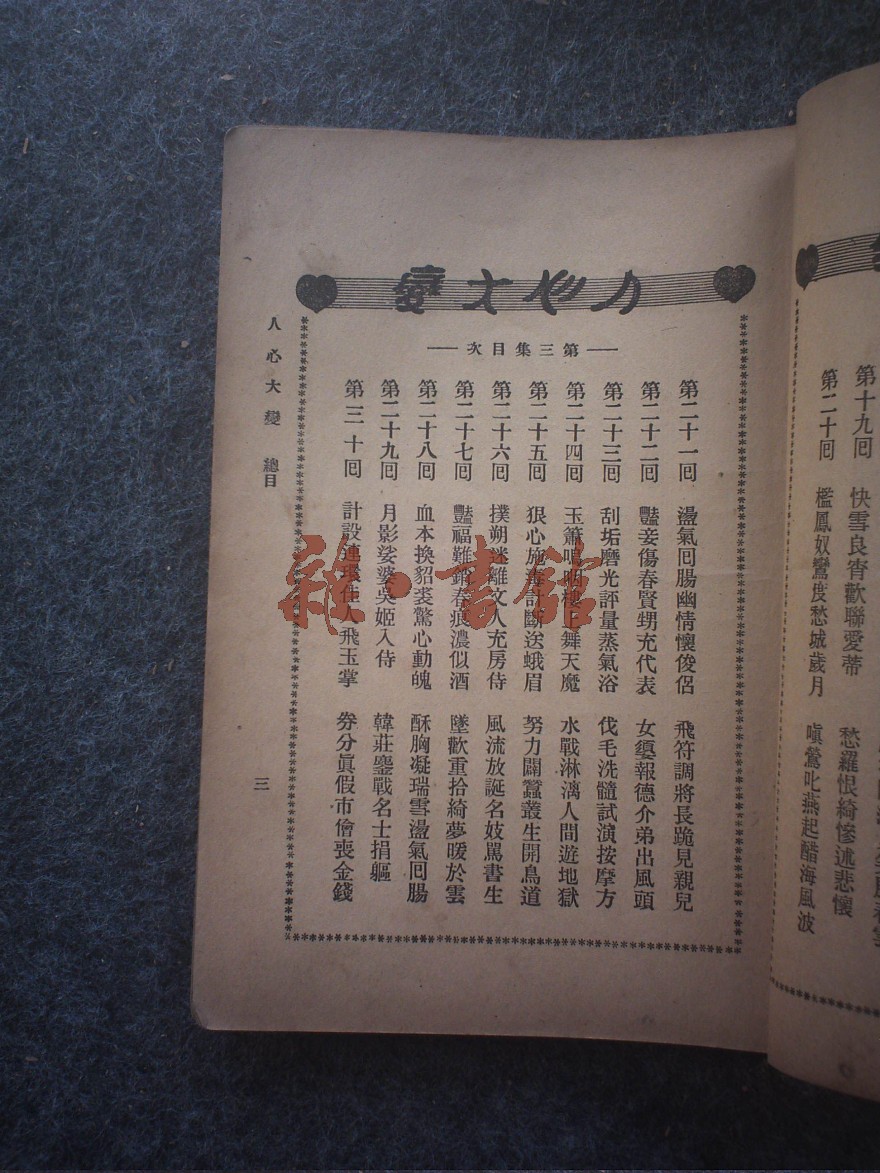 人心大變
第三集目次
第二十一回 盪氣回腸幽情懷俊侶 飛符調將長跪見親兒
第二十二回 豔妾傷春賢甥充代表 女嬃報德介弟出風頭
第二十三回 刮垢磨光評量蒸氣浴 伐毛洗髓試演按摩方
第二十四回 玉簫嗚咽樓上舞天魔 水戰淋漓人間遊地獄
第二十五回 狠心施毒計斷送蛾眉 努力闢蠶叢生開鳥道
第二十六回 撲朔迷離文人充房侍 風流放誕名妓罵書生
第二十七回 豔福難銷春痕濃似酒 墜歡重拾綺夢暖於雲
第二十八回 血本換貂裘驚心動魄 酥胸凝瑞雪盪氣回腸
第二十九回 月影娑婆吳姬入侍 韓莊鏖戰名士捐軀
第三十回 計設連環佳人飛玉掌 券分眞假市儈喪金錢
人心大變 總目
三
第十九回 快雪良宵歡聯愛蒂 愁羅恨綺慘述悲懷
第二十回 檻鳳奴鸞度愁城歲月 嗔鶯叱燕起醋海風波
雜·書館